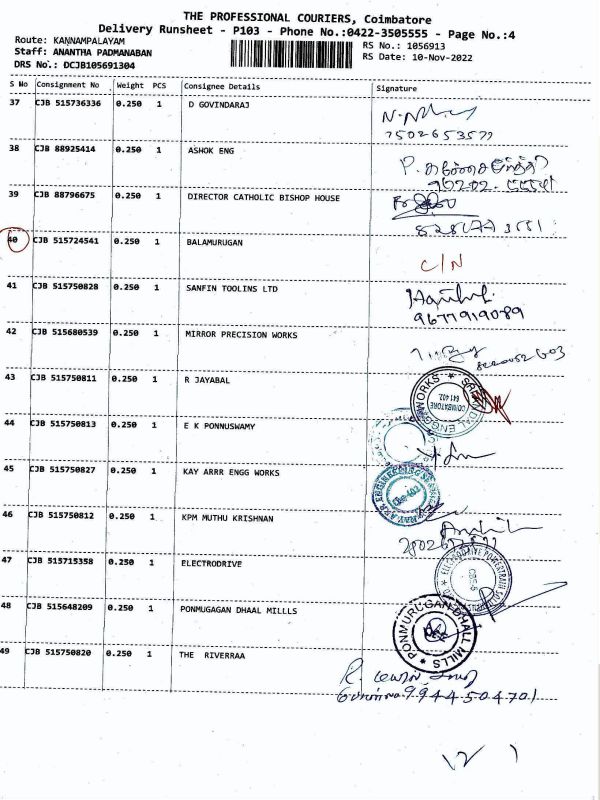 THE PROFESSIONAL COURIERS, Coimbatore
Delivery Runsheet - P103 - Phone No.:0422-3505555 - Page No.:4
Route: KANNAMPALAYAM
RS No.: 1056913
Staff: ANANTHA PADMANABAN
RS Date: 10-Nov-2022
DRS No.: DCJB105691304
S No Consignment No Weight PCS Consignee Details Signature
37 CJB 515736336 0.250 1 D GOVINDARAJ
7502653577
38 CJB 88925414 0.250 1 ASHOK ENG
39 CJB 88796675 0.250 1 DIRECTOR CATHOLIC BISHOP HOUSE
40 CJB 515724541 0.250 1 BALAMURUGAN
C/N
41 CJB 515750828 0.250 1 SANFIN TOOLINS LTD
9677919089
42 CJB 515680539 0.250 1 MIRROR PRECISION WORKS
43 CJB 515750811 0.250 1 R JAYABAL
COIMBATORE
641 402.
44 CJB 515750813 0.250 1 E K PONNUSWAMY
45 CJB 515750827 0.250 1 KAY ARRR ENGG WORKS
46 CJB 515750812 0.250 1 KPM MUTHU KRISHNAN
47 CJB 515715358 0.250 1 ELECTRODRIVE
48 CJB 515648209 0.250 1 PONMUGAGAN DHAAL MILLLS
PONMURUGAN DHALL MILLS
49 CJB 515750820 0.250 1 THE RIVERRAA
9944504701